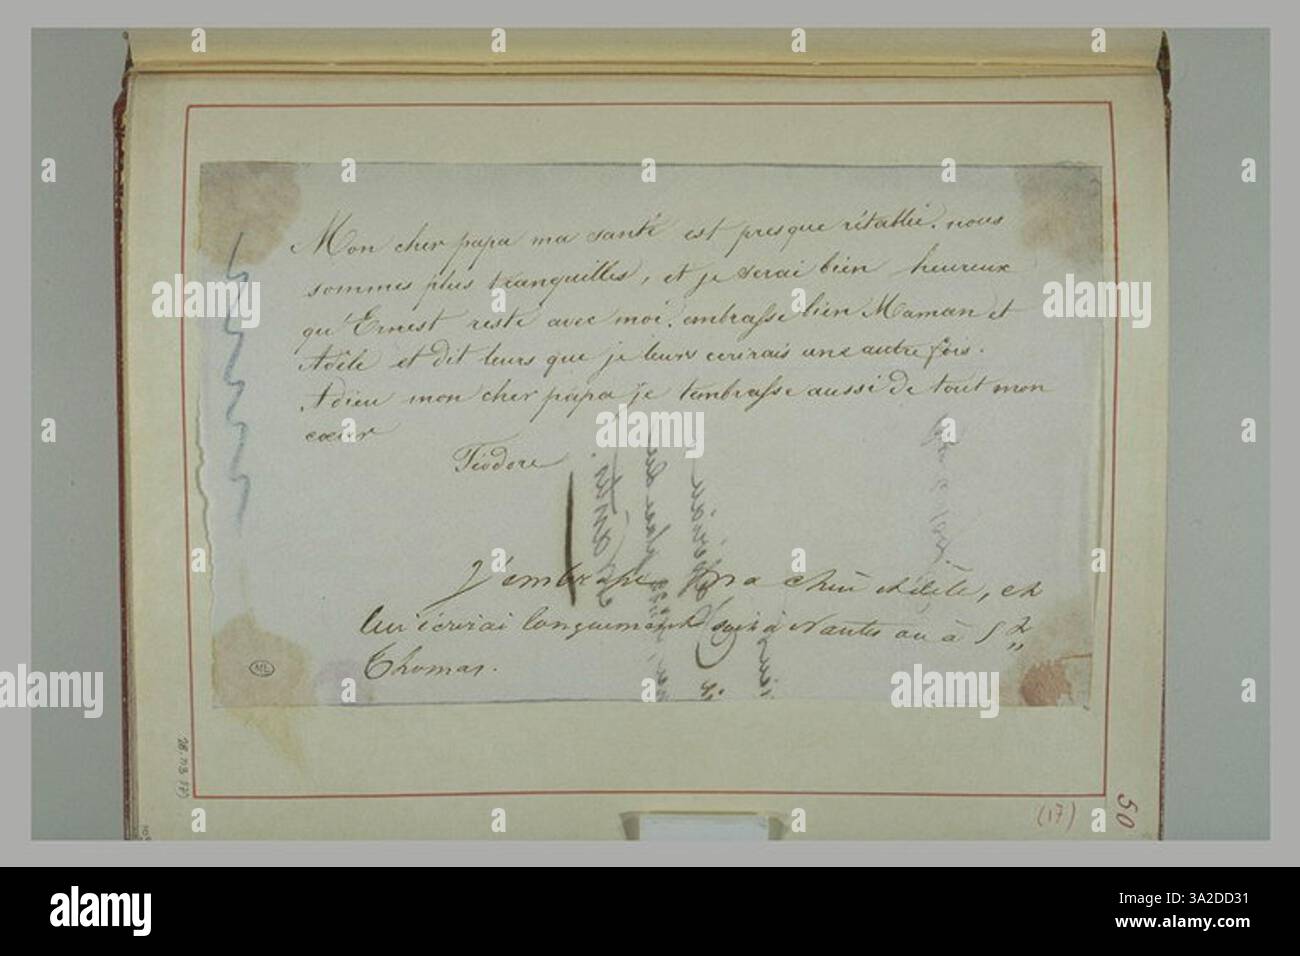 Mon cher papa ma santé est presque rétablie. nous
sommes plus tranquilles, et je serai bien heureux
qu'Ernest reste avec moi. embrasse bien Maman et
Adèle et dit leurs que je leurs ecrirais une autre fois.
Adieu mon cher papa je t'embrasse aussi de tout mon
cœur
Tiodore
J'embrasse ma chère Adèle, et
lui écrirai longuement soit à Nantes ou à St
Thomas.
ML
28.113 17)
(17)
50
alamy
Image ID: 3A2DD31
www.alamy.com